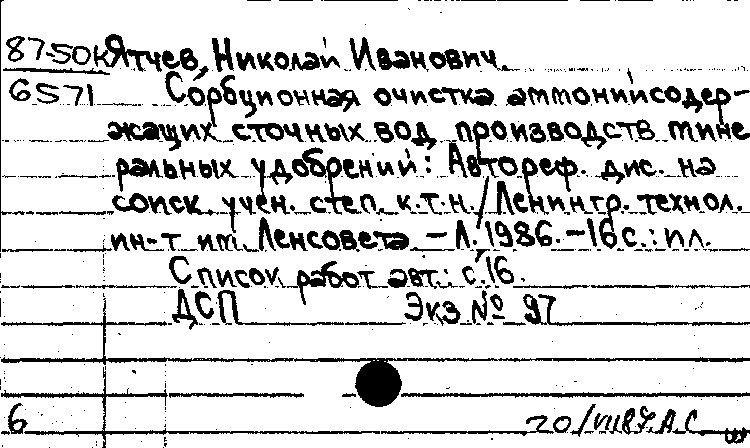 87-50к Ятчев, Николай Иванович.
6571 Сорбционная очистка аммонийсодер-
жащих сточных вод производств мине
ральных удобрений: Автореф. дис. на
соиск. учен. степ. к.т.н./Ленингр. технол.
ин-т им. Ленсовета. - Л. 1986. - 16 с.: ил.
Список работ авт.: с. 16.
ДСП Экз № 97
6 20/VII 87. А.С.